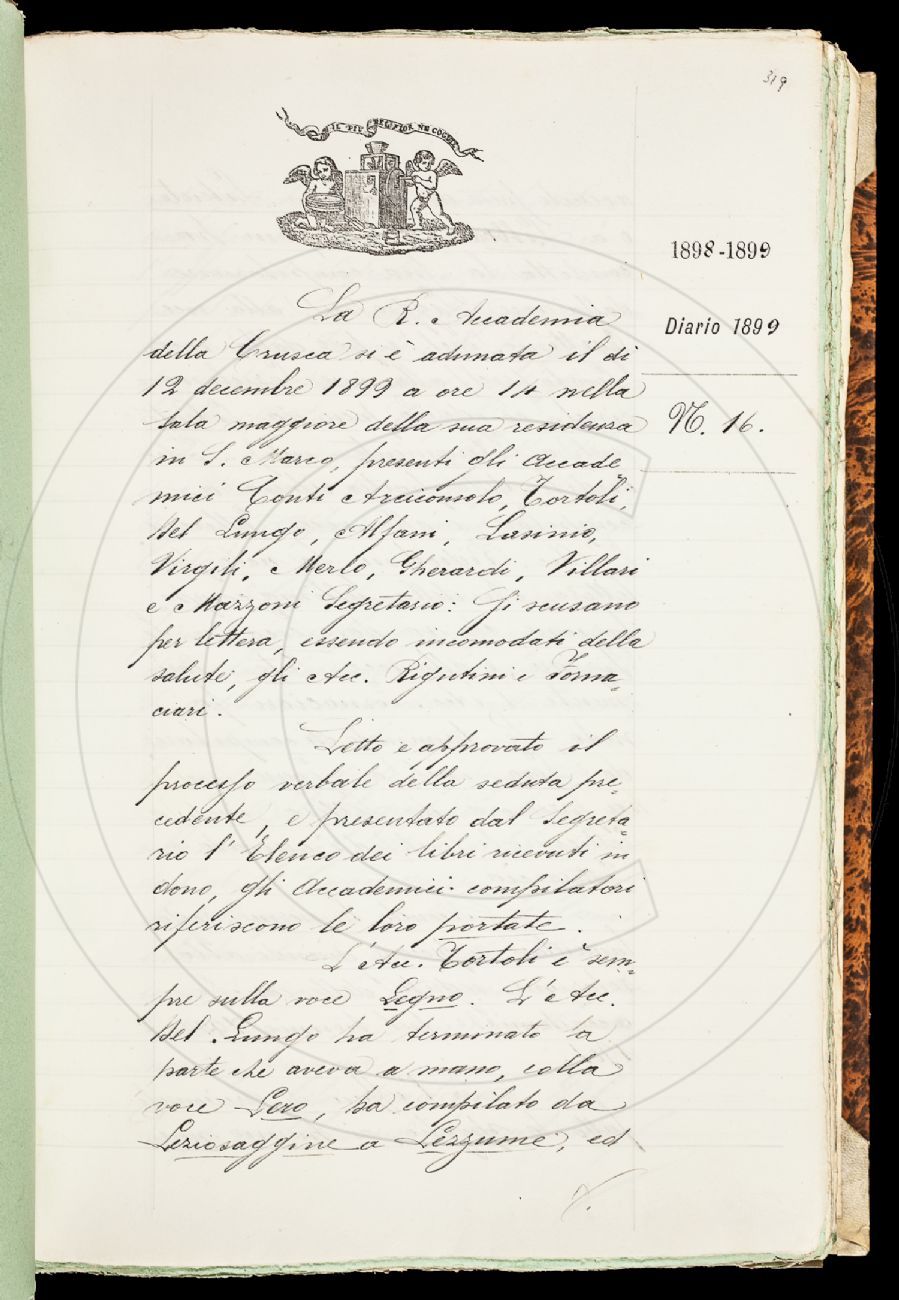 319
IL PIÙ BEL FIOR NE COGLIE
1898-1899
Diario 1899
N. 16.
La R. Accademia
della Crusca si è adunata il dì
12 decembre 1899 a ore 14 nella
sala maggiore della sua residenza
in S. Marco, presenti gli Accade
mici Conti Arciconsolo, Tortoli,
Del Lungo, Alfani, Lasinio,
Virgili, Merlo, Gherardi, Villari
e Mazzoni Segretario: Si scusano
per lettera, essendo incomodati della
salute, gli Acc. Rigutini e Forna=
ciari.
Letto e approvato il
processo verbale della seduta pre=
cedente, e presentato dal Segreta=
rio l'Elenco dei libri ricevuti in
dono, gli Accademici compilatori
riferiscono le loro portate.
L'Acc. Tortoli è sem=
pre sulla voce Legno. L'Acc.
Del Lungo ha terminato la
parte che aveva a mano, colla
voce Lero, ha compilato da
Leziosaggine a Lezzume, ed